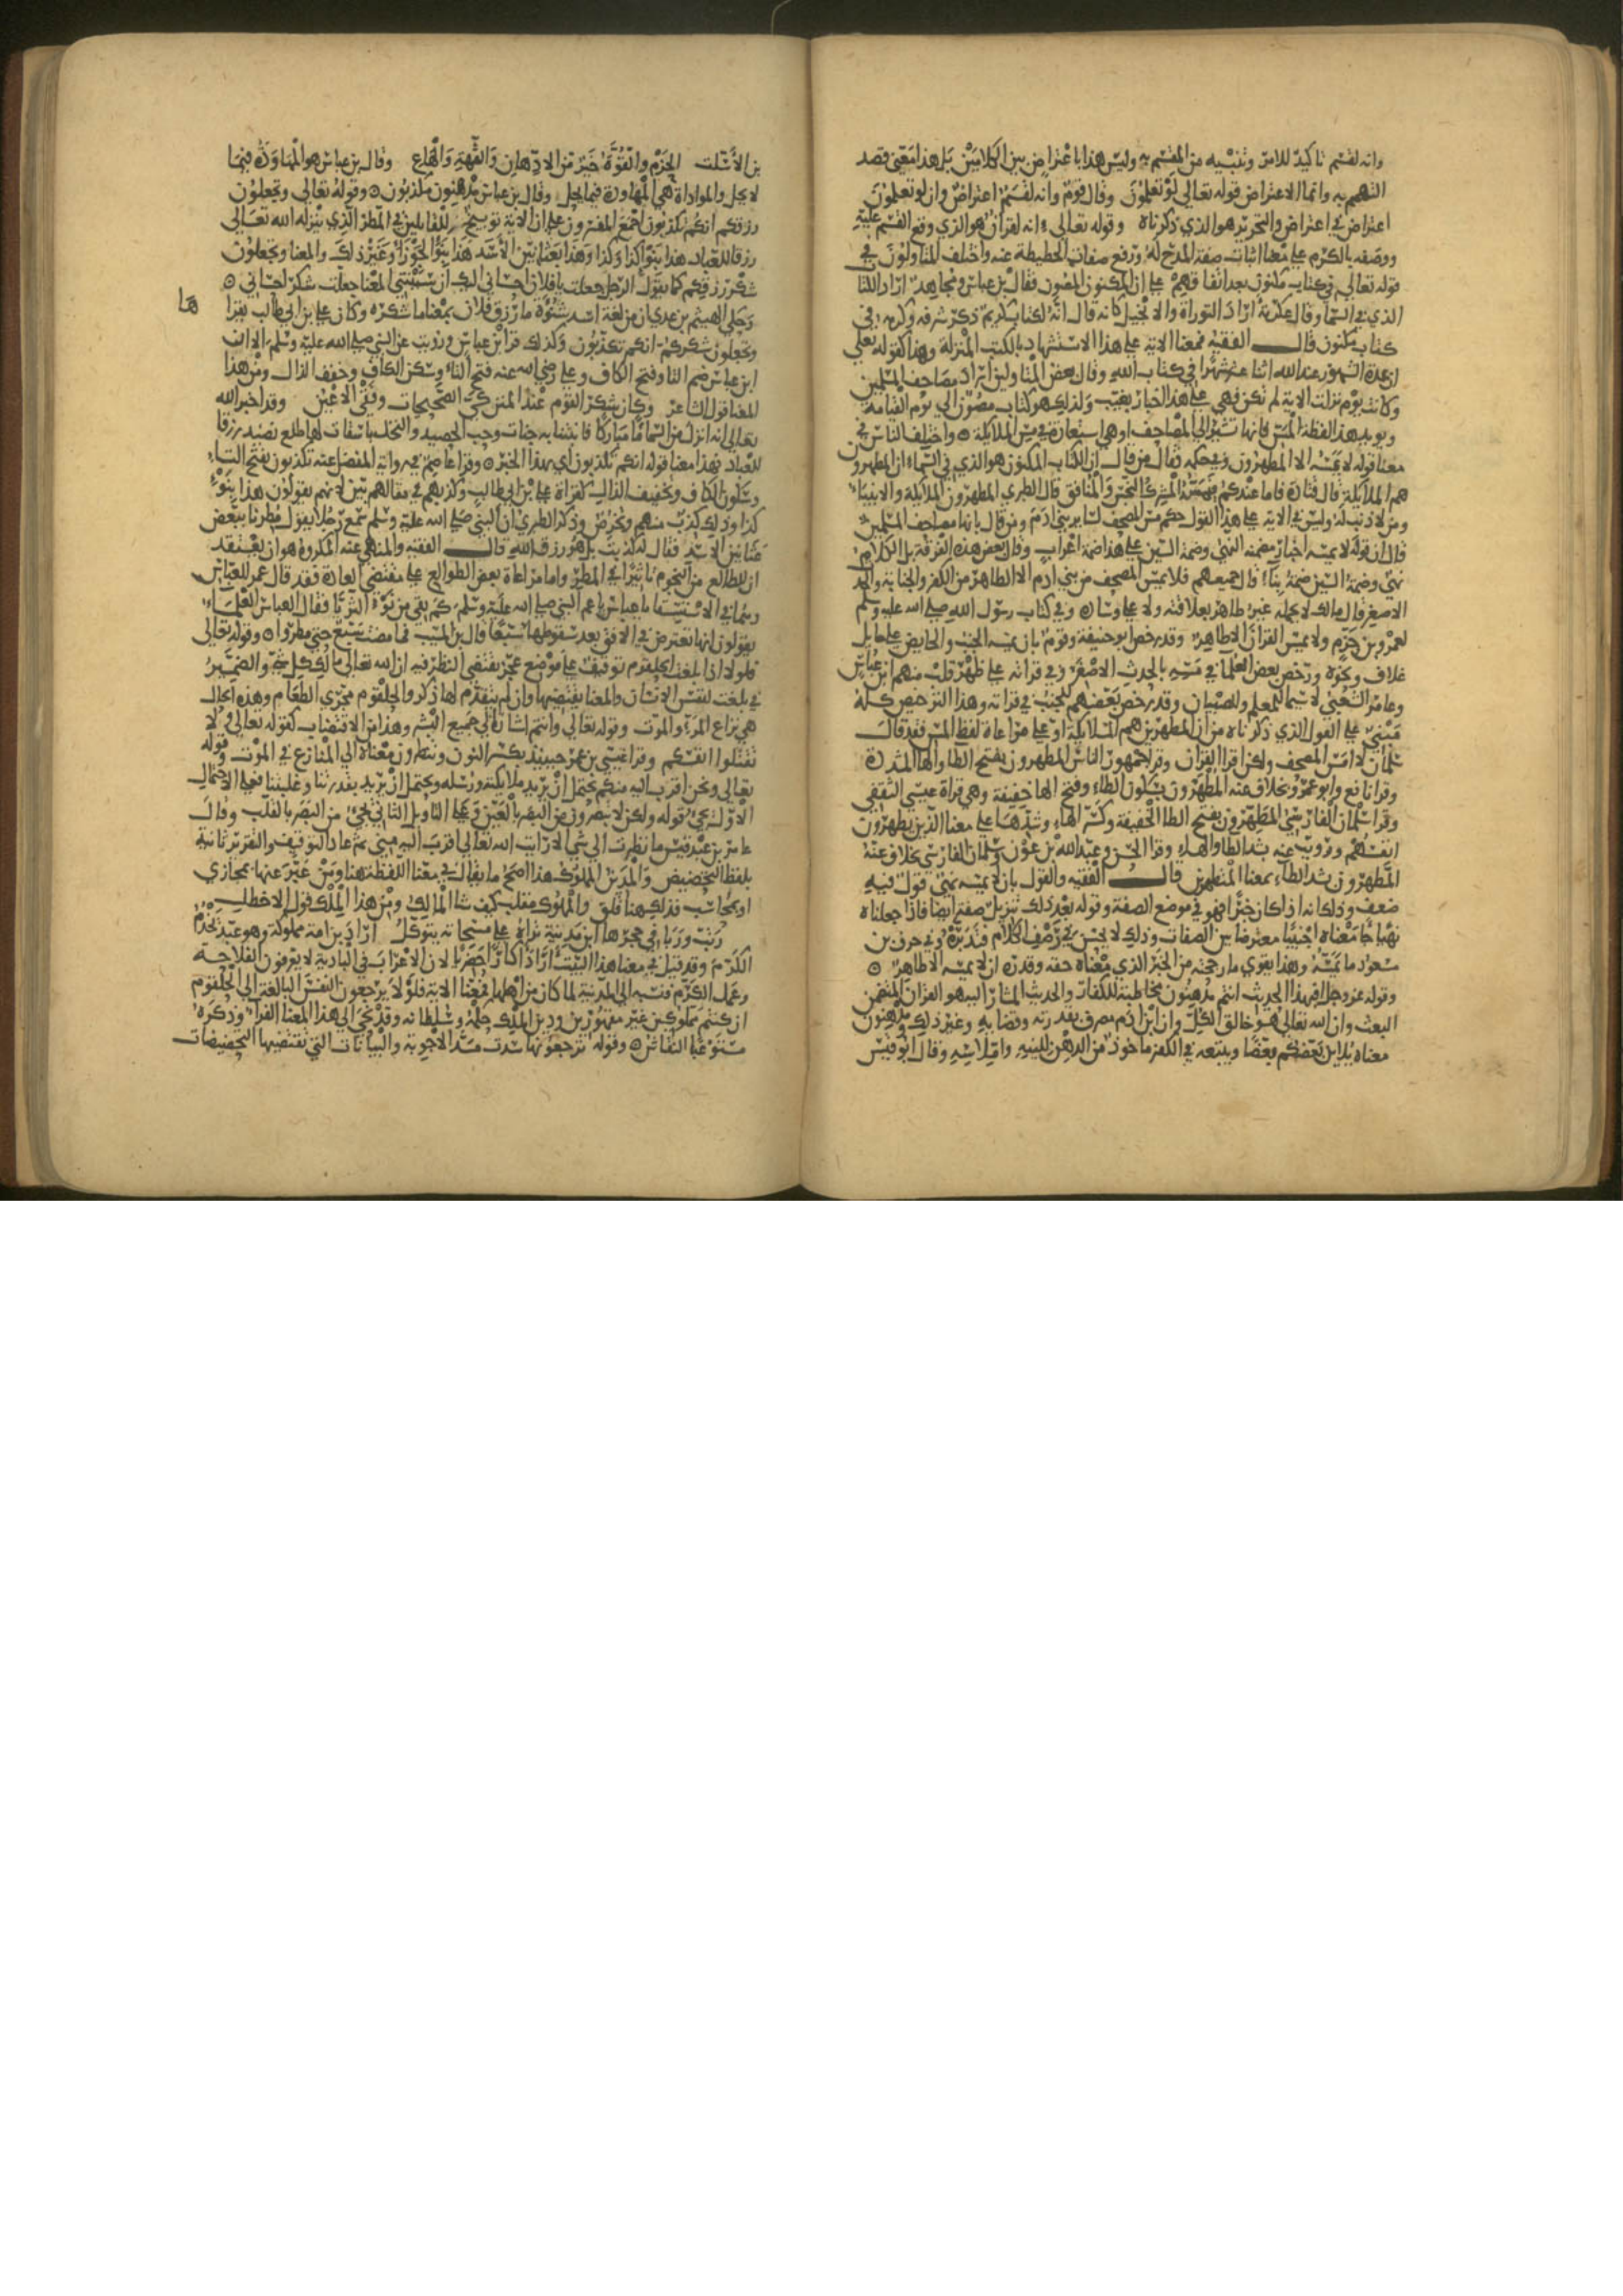 وانه لقسم تاكيد للامر وتنبيه من المقسم به وليس هذا باعتراض بين الكلامين بل هذا معنى قصد
التهمم به وانما الاعتراض قوله تعالى لو تعلمون وقال قوم وانه لقسم اعتراض وان لو تعلمون
اعتراض في اعتراض والتحرير هو الذي ذكرناه وقوله تعالى انه لقران هو الذي وقع القسم عليه
ووصفه بالكرم على معنا اثبات صفة المدح له ورفع صفات الحطيطة عنه واختلف المتاولون في
قوله تعالى في كتاب مكنون بعد اتفاقهم على ان المكنون المصون فقال بن عباس ومجاهد اراد الكتاب
الذي في السما وقال عكرمة اراد التوراة والانجيل كانه قال انه لكتاب كريم ذكر شرفه وكرمه في
كتاب مكنون قال الفقيه فمعنا الاية على هذا الاستشهاد بالكتب المنزلة وهذا كقوله تعلى
ان عدة الشهور عند الله اثنا عشر شهرا في كتاب الله وقال بعض المتاولين اراد مصاحف المسلمين
وكانت يوم نزلت الاية لم تكن فهي على هذا اخبار بغيب وكذلك هو كتاب مصون الى يوم القيامة
ويويد هذا لفظة المس فانها تشير الى المصاحف او هي استعارة في مس الملايكة واختلف الناس في
معنا قوله لا يمسه الا المطهرون وفي حكمه فقال من قال ان الكتاب المكنون هو الذي في السماء ان المطهرون
هم الملايكة قال قتادة فاما عندكم فيمسه المشرك النجس والمنافق قال الطبري المطهرون الملايكة والانبياء
ومن لا ذنب له وليس في الاية على هذا القول حكم مس المصحف لساير بني ادم ومن قال بانها مصاحف المسلمين
قال ان قوله لا يمسه اخبار مضمنه النهي وضمة السين على هذا ضمة اعراب وقال بعض هذه الفرقة بل الكلام
نهي وضمة السين ضمة بنا قال جميعهم فلا يمس المصحف من بني ادم الا الطاهر من الكفر والجنابة والحدث
الاصغر قال مالك لا يحمله غير طاهر بعلاقته ولا على وسادة وفي كتاب رسول الله صلى الله عليه وسلم
لعمرو بن حزم ولا يمس القران الا طاهر وقد رخص ابو حنيفة وقوم بان يمسه الجنب والحايض على حايل
غلاف ونحوه ورخص بعض العلما في مسه بالحدث الاصغر وفي قراته على ظهر قلب منهم ابن عباس
وعامر الشعبي لا سيما للمعلم والصبيان وقد رخص بعضهم للجنب في قراته وهذا الترخيص كله
مبني على القول الذي ذكرناه من ان المطهرين هم الملايكة او على مراعاة لفظ المس فقد قال
سلمان لا امس المصحف ولكن اقرا القران وقرا جمهور الناس المطهرون بفتح الطا والها المشددة
وقرا نافع وابو عمرو بخلاف عنه المطهرون بسكون الطاء وفتح الها خفيفة وهي قراة عيسى الثقفي
وقرا سلمان الفارسي المطهرون بفتح الطا الخفيفة وكسر الهاء وشدها على معنا الذين يطهرون
انفسهم ورويت عنه بشد الطا والهاء وقرا الحسن وعبد الله بن عون وسلمان الفارسي بخلاف عنه
المطهرون بشد الطاء بمعنا المتطهرين قال الفقيه والقول بان لا يمسه نهي قول فيه
ضعف وذلك انه اذا كان خبرا فهو في موضع الصفة وقوله بعد ذلك تنزيل صفة ايضا فاذا جعلناه
نهيا جا معناه اجنبيا معترضا بين الصفات وذلك لا يحسن في رصف الكلام فتدبره وفي حرف بن
مسعود ما يمسه وهذا يقوي ما رجحته من الخبر الذي معناه حقه وقدره ان لا يمسه الا طاهر
وقوله عز وجل افبهذا الحديث انتم مدهنون مخاطبة للكفار والحديث المشار اليه هو القران المتضمن
البعث وان الله تعالى هو خالق الكل وان ابن ادم مصرف بقدرته وقضايه وغير ذلك ومدهنون
معناه يلاين بعضكم بعضا ويتبعه في الكفر ماخوذ من الدهن للينه واملاسه وقال ابو قيس
بن الاسلت الحزم والقوة خير من الادهان والفهة والهاع وقال بن عباس هو المهاودة فيما
لا يحل والمداراة هي المهاودة فيما يحل وقال بن عباس مدهنون مكذبون وقوله تعالى وتجعلون
رزقكم انكم تكذبون اجمع المفسرون على ان الاية توبيخ للقايلين في المطر الذي ينزله الله تعالى
رزقا للعباد هذا بنوا كذا وكذا وهذا بعثانين الاسد هذا بنو الجوزا وغير ذلك والمعنا وتجعلون
شكر رزقكم كما يقول الرجل جعلت يا فلان احساني اليك ان تشتمني المعنا جعلت شكر احساني
وحكى الهيثم بن عدي ان من لغة ازد شنوة ما رزق فلان بمعنا ما شكره وكان على بن ابي طالب يقرا
هما
وتجعلون شكركم انكم تكذبون وكذلك قرا بن عباس ورويت عن النبي صلى الله عليه وسلم الا ان
ابن عباس ضم التا وفتح الكاف وعلي رضي الله عنه فتح التاء وسكن الكاف وخفف الذال ومن هذا
المعنا قول الشاعر وكان شكر القوم عند المنن كي الصحيحات وفقى الاعين وقد اخبر الله
تعالى انه انزل من السما ما مباركا فانبتنا به جنات وحب الحصيد والنخل باسقات لها طلع نضيد رزقا
للعباد فهذا معنا قوله انكم تكذبون اي بهذا الخبر وقرا عاصم في رواية المفضل عنه تكذبون بفتح التاء
وسكون الكاف وتخفيف الذال كقراة على بن ابي طالب وكذبهم في مقالهم بين لانهم يقولون هذا بنوء
كذا وذلك كذب منهم وتخرص وذكر الطبري ان النبي صلى الله عليه وسلم سمع رجلا يقول مطرنا ببعض
عثانين الاسد فقال له كذبت بل هو رزق الله قال الفقيه والمنهي عنه المكروه هو ان يعتقد
ان للطالع من النجوم تاثيرا في المطر واما مراعاة بعض الطوالع على مقتضى العادة فقد قال عمر للعباس
وهما في الاستسقا يا عباس يا عم النبي صلى الله عليه وسلم كم بقي من نوء الثريا فقال العباس العلماء
يقولون انها تعترض في الافق بعد سقوطها سبعا قال بن المسيب فما مضت سبع حتى مطروا وقوله تعالى
فلولا اذا بلغت الحلقوم توقيف على موضع عجز يقتضي النظر فيه ان الله تعالى مالك كل شي والضمير
في بلغت لنفس الانسان والمعنا يقتضيها وان لم يتقدم لها ذكر والحلقوم مجرى الطعام وهذه الحال
هي نزاع المرء والموت وقوله تعالى وانتم اشارة الى جميع البشر وهذا من الاقتضاب كقوله تعالى لا
تقتلوا انفسكم وقرا عيسى بن عمر حينيذ بكسر النون وتنظرون معناه الى المنازع في الموت وقوله
تعالى ونحن اقرب اليه منكم يحتمل ان يريد ملايكته ورسله ويحتمل ان يريد بقدرتنا وغلبتنا فعلى الاحتمال
الاول يجي قوله ولكن لا تبصرون من البصر بالعين وعلى التاويل الثاني يجي من البصر بالقلب وقال
عامر بن عبد قيس ما نظرت الى شي الا رايت الله تعالى اقرب اليه مني ثم عاد التوقيف والتقرير ثانية
بلفظ التحضيض والمدين المملوك هذا اصح ما يقال في معنا اللفظة هنا ومن عبر عنها بمجازى
او بمحاسب فذلك هنا قلق والمملوك مقلب كيف شا المالك ومن هذا الملك قول الاخطل
ربت وربا في حجرها ابن مدينة تراه على مسحاته يتوكل اراد بن امة مملوكة وهو عبد يخدم
الكرم وقد قيل في معنا هذا البيت اراد اكارا حضريا لان الاعراب في البادية لا يعرفون الفلاحة
وعمل الكرم فنسبه الى المدينة لما كان من اهلها فمعنا الاية فلولا ترجعون النفس البالغة الى الحلقوم
ان كنتم غير مملوكين مقهورين ودين الملك حكمه وسلطانه وقد نحى الى هذا المعنا الفراء وذكره
مستوعبا النقاش وقوله ترجعونها سدت مسد الاجوبة والبيانات التي تقتضيها التحضيضات